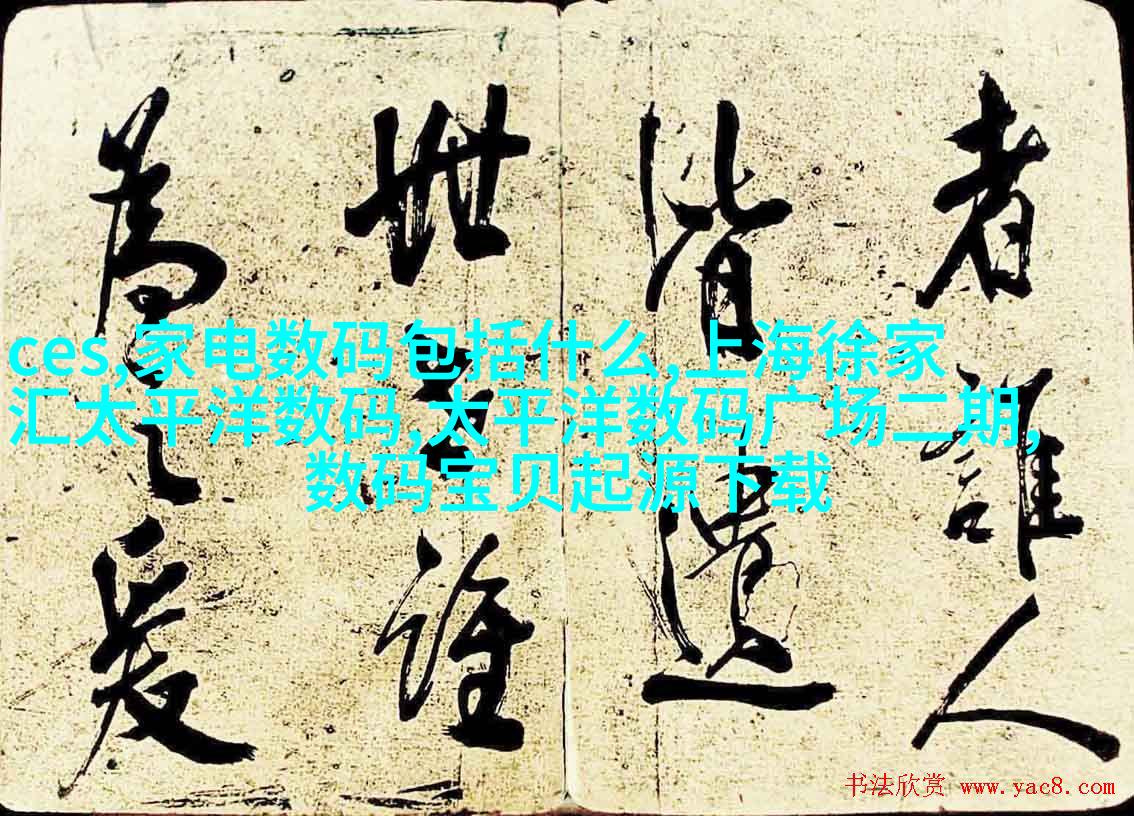 者誰人
皆遺
世誰
為之爰
ces,家电数码包括什么,上海徐家
汇太平洋数码,太平洋数码广场二期,
数码宝贝起源下载
书法欣赏 www.yac8.com